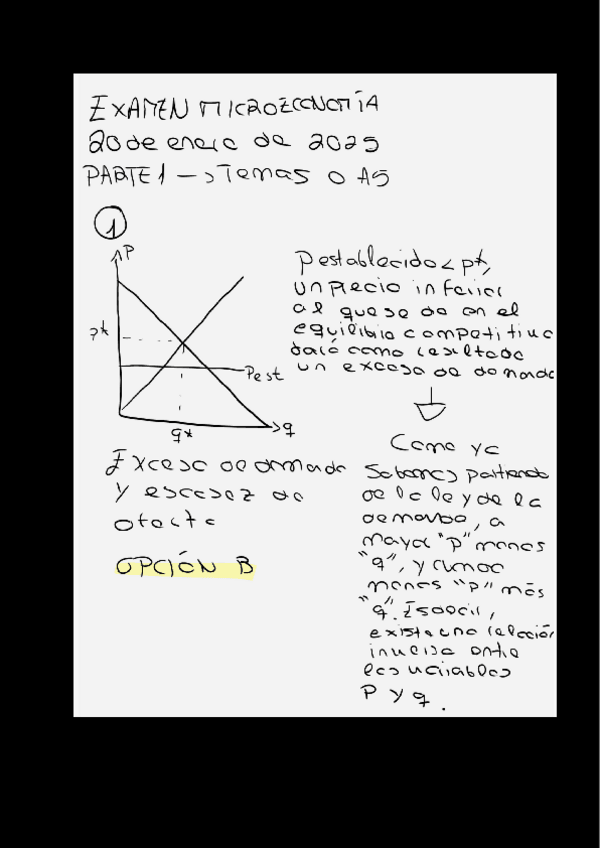 EXAMEN MICROECONOMÍA
20 de enero de 2025
PARTE 1 -> Temas 0 A 5
1
P
P*
Pest
q*
q
Pestablecido < P*,
un precio inferior
al que se da en el
equilibrio competitivo
dará como resultado
un exceso de demanda
Exceso demanda
y escasez de
oferta
OPCIÓN B
Como ya
sabemos partiendo
de la ley de la
demanda, a
mayor "P" menos
"q", y cuanto
menos "P" más
"q". Es decir,
existe una relación
inversa entre
las variables
P y q.